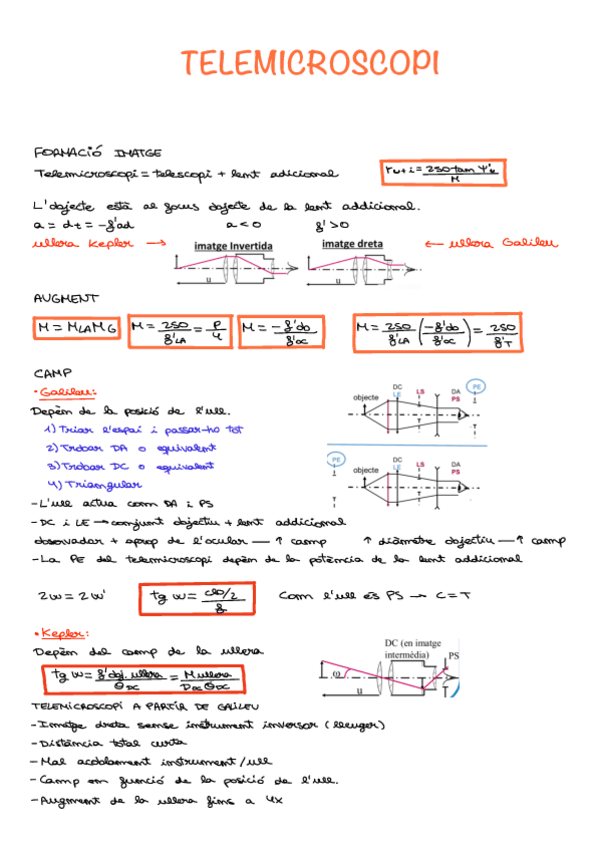 TELEMICROSCOPI
FORMACIÓ IMATGE
Telemicroscopi = telescopi + lent adicional
r u + i = 250 tam Ψ'u / M
L'objecte està al focus objecte de la lent addicional.
a = dt = -f'ad a < 0 f' > 0
ullera Kepler → imatge Invertida imatge dreta ← ullera Galileu
u u
AUGMENT
M = MLA MG M = 250/f'LA = P/4 M = -f'ob/f'oc M = 250/f'LA (-f'ob/f'oc) = 250/f'T
CAMP
• Galileu:
Depèn de la posició de l'ull.
1) Triar l'espai i passar-ho tot
2) Trobar DA o equivalent
3) Trobar DC o equivalent
4) Triangular
objecte DC LE LS DA PS PE T
PE objecte DC LE LS DA PS T
- L'ull actua com DA i PS
- DC i LE → conjunt objectiu + lent addicional
observador + aprop de l'ocular — ↑ camp ↑ diàmetre objectiu — ↑ camp
- La PE del telemicroscopi depèn de la potència de la lent addicional
2w = 2w' tg w = /2 Com l'ull és PS → C = T
• Kepler:
Depèn del camp de la ullera
tg w = f'obj. ullera/ΘDC = M ullera/Doc ΘDC
DC (en imatge
intermèdia) PS
ω u T
TELEMICROSCOPI A PARTIR DE GALILEU
- Imatge dreta sense instrument inversor (lleuger)
- Distància total curta
- Mal acoblament instrument/ull
- Camp en funció de la posició de l'ull.
- Augment de la ullera fins a 4x